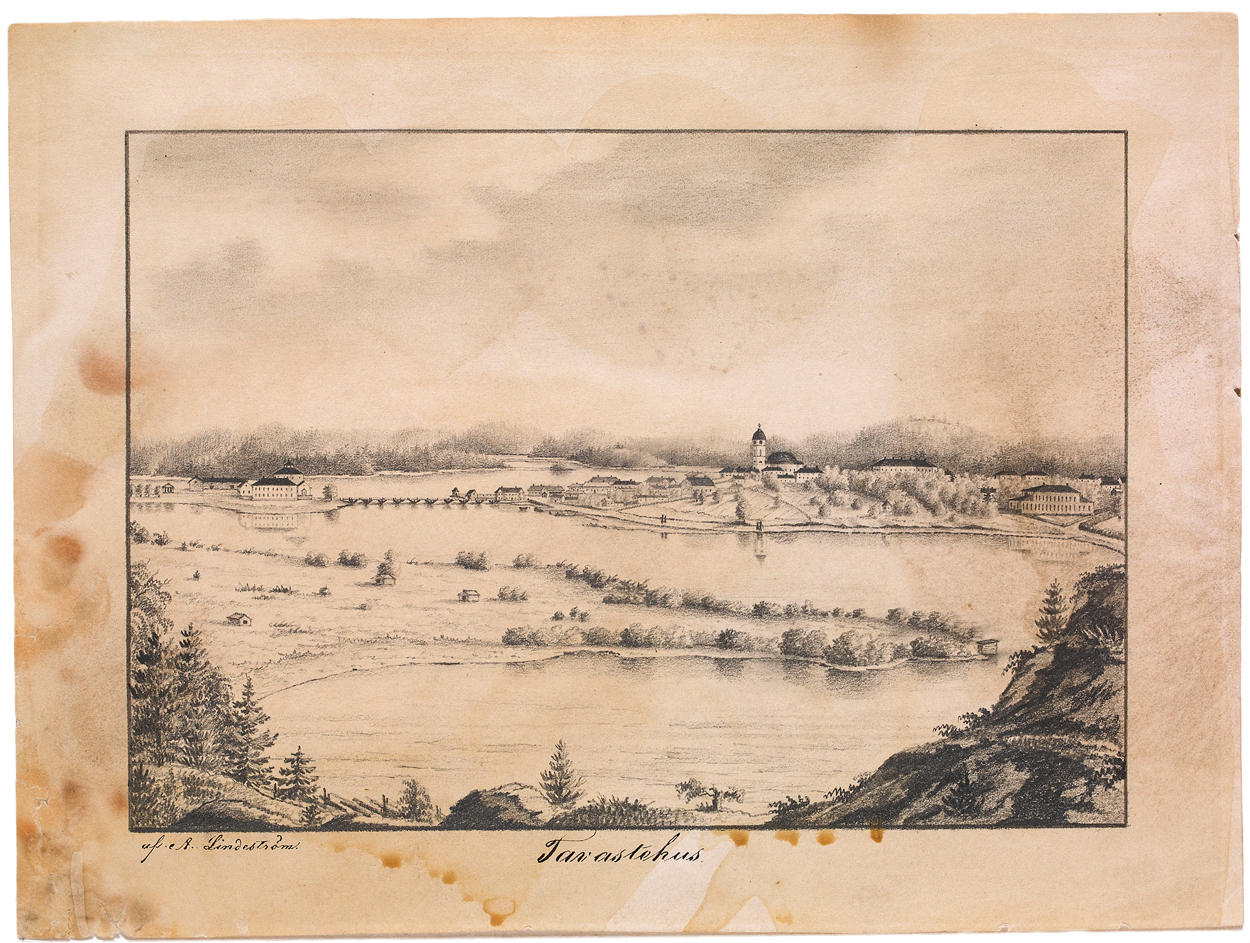 af. A. Lindeström.
Tavastehus.